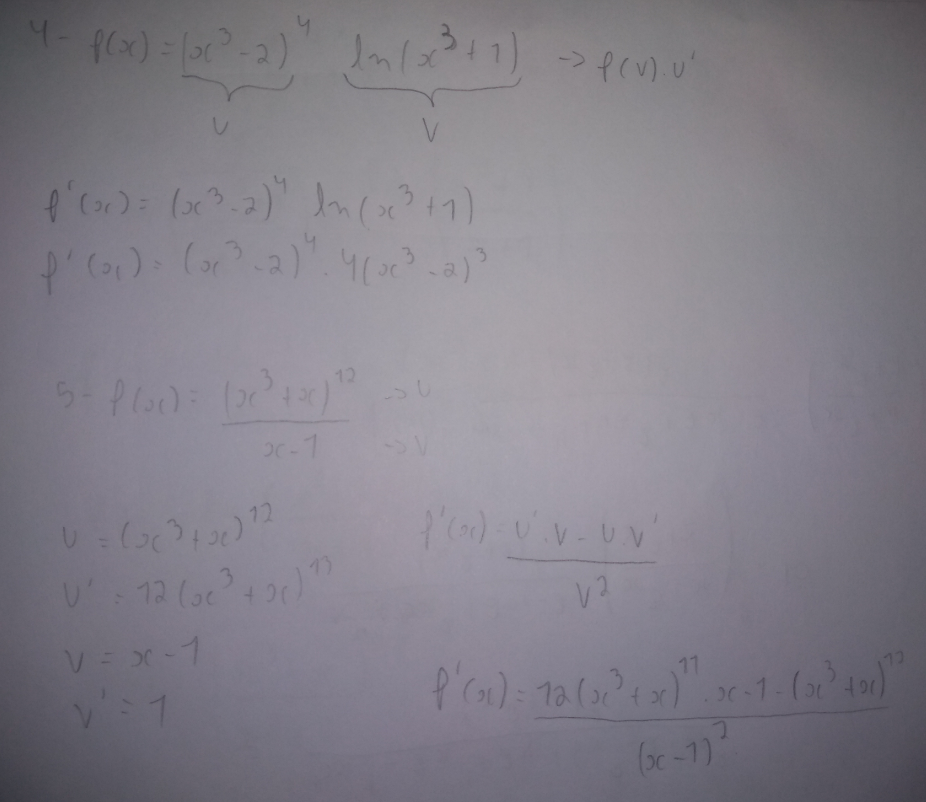 4- f(x) = (x³-2)⁴ ln(x³+1) -> f(v).v'
U V
f'(x) = (x³-2)⁴ ln(x³+1)
f'(x) = (x³-2)⁴ . 4(x³-2)³
5- f(x) = (x³+x)¹² -> U
x-1 -> V
U = (x³+x)¹² f'(x) = U'.V - U.V'
U' = 12(x³+x)¹¹ V²
V = x-1
V' = 1 f'(x) = 12(x³+x)¹¹ . x-1-(x³+x)¹²
(x-1)²